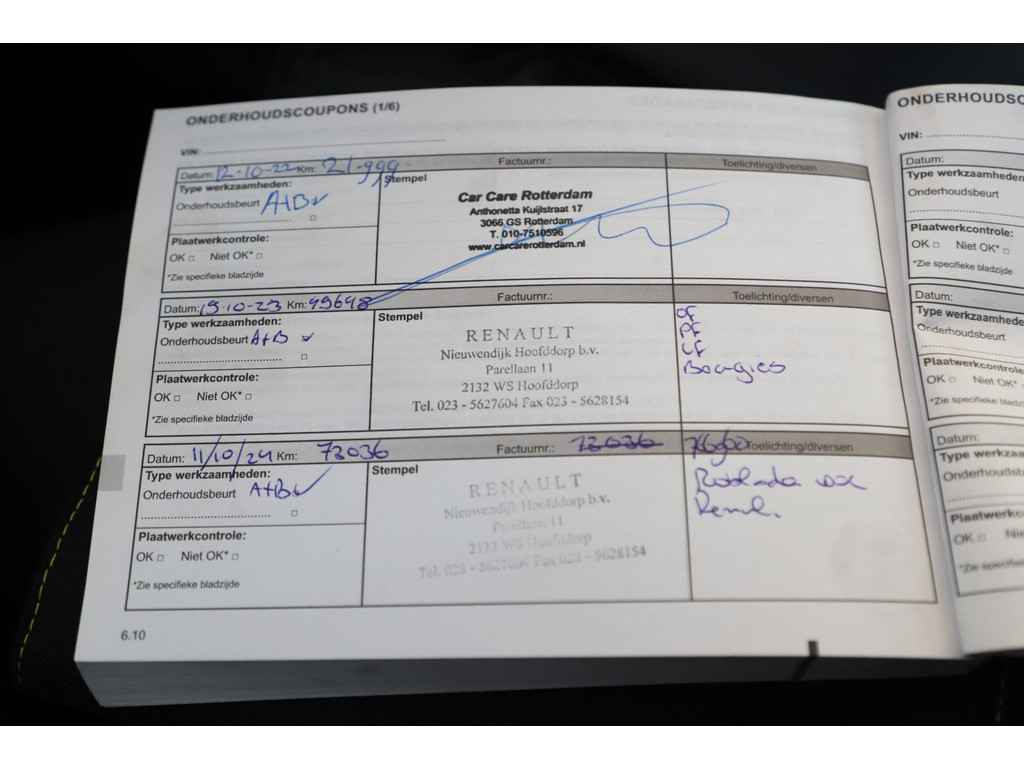 ONDERHOUDSCOUPONS (1/6)
VIN:
Datum: 12-10-22 Km: 21-999 Factuurnr.: Toelichting/diversen
Type werkzaamheden: Stempel
Onderhoudsbeurt A+B
Car Care Rotterdam
Anthonetta Kuijlstraat 17
3066 GS Rotterdam
T. 010-7510596
www.carcarerotterdam.nl
Plaatwerkcontrole:
OK □ Niet OK* □
*Zie specifieke bladzijde
Datum: 19-10-23 Km: 49648 Factuurnr.: Toelichting/diversen
Type werkzaamheden: Stempel
Onderhoudsbeurt A+B
RENAULT
Nieuwendijk Hoofddorp b.v.
Parellaan 11
2132 WS Hoofddorp
Tel. 023 - 5627604 Fax 023 - 5628154
OF
PF
LF
Bougies
Plaatwerkcontrole:
OK □ Niet OK* □
*Zie specifieke bladzijde
Datum: 11/10/24 Km: 73036 Factuurnr.: 73036 Toelichting/diversen
Type werkzaamheden: Stempel
Onderhoudsbeurt A+B
RENAULT
Nieuwendijk Hoofddorp b.v.
Parellaan 11
2132 WS Hoofddorp
Tel. 023 - 5627604 Fax 023 - 5628154
Plaatwerkcontrole:
OK □ Niet OK* □
*Zie specifieke bladzijde
6.10
ONDERHOUDSC
VIN:
Datum:
Type werkzaamhede
Onderhoudsbeurt
Plaatwerkcontrole:
OK □ Niet OK* □
*Zie specifieke bladzijde
Datum:
Type werkzaamhede
Onderhoudsbeurt
Plaatwerkcontrole
OK □ Niet OK*
*Zie specifieke bladzijde
Datum:
Type werkzaa
Onderhoudsb
Plaatwerkcon
OK □ Nie
*Zie specifieke